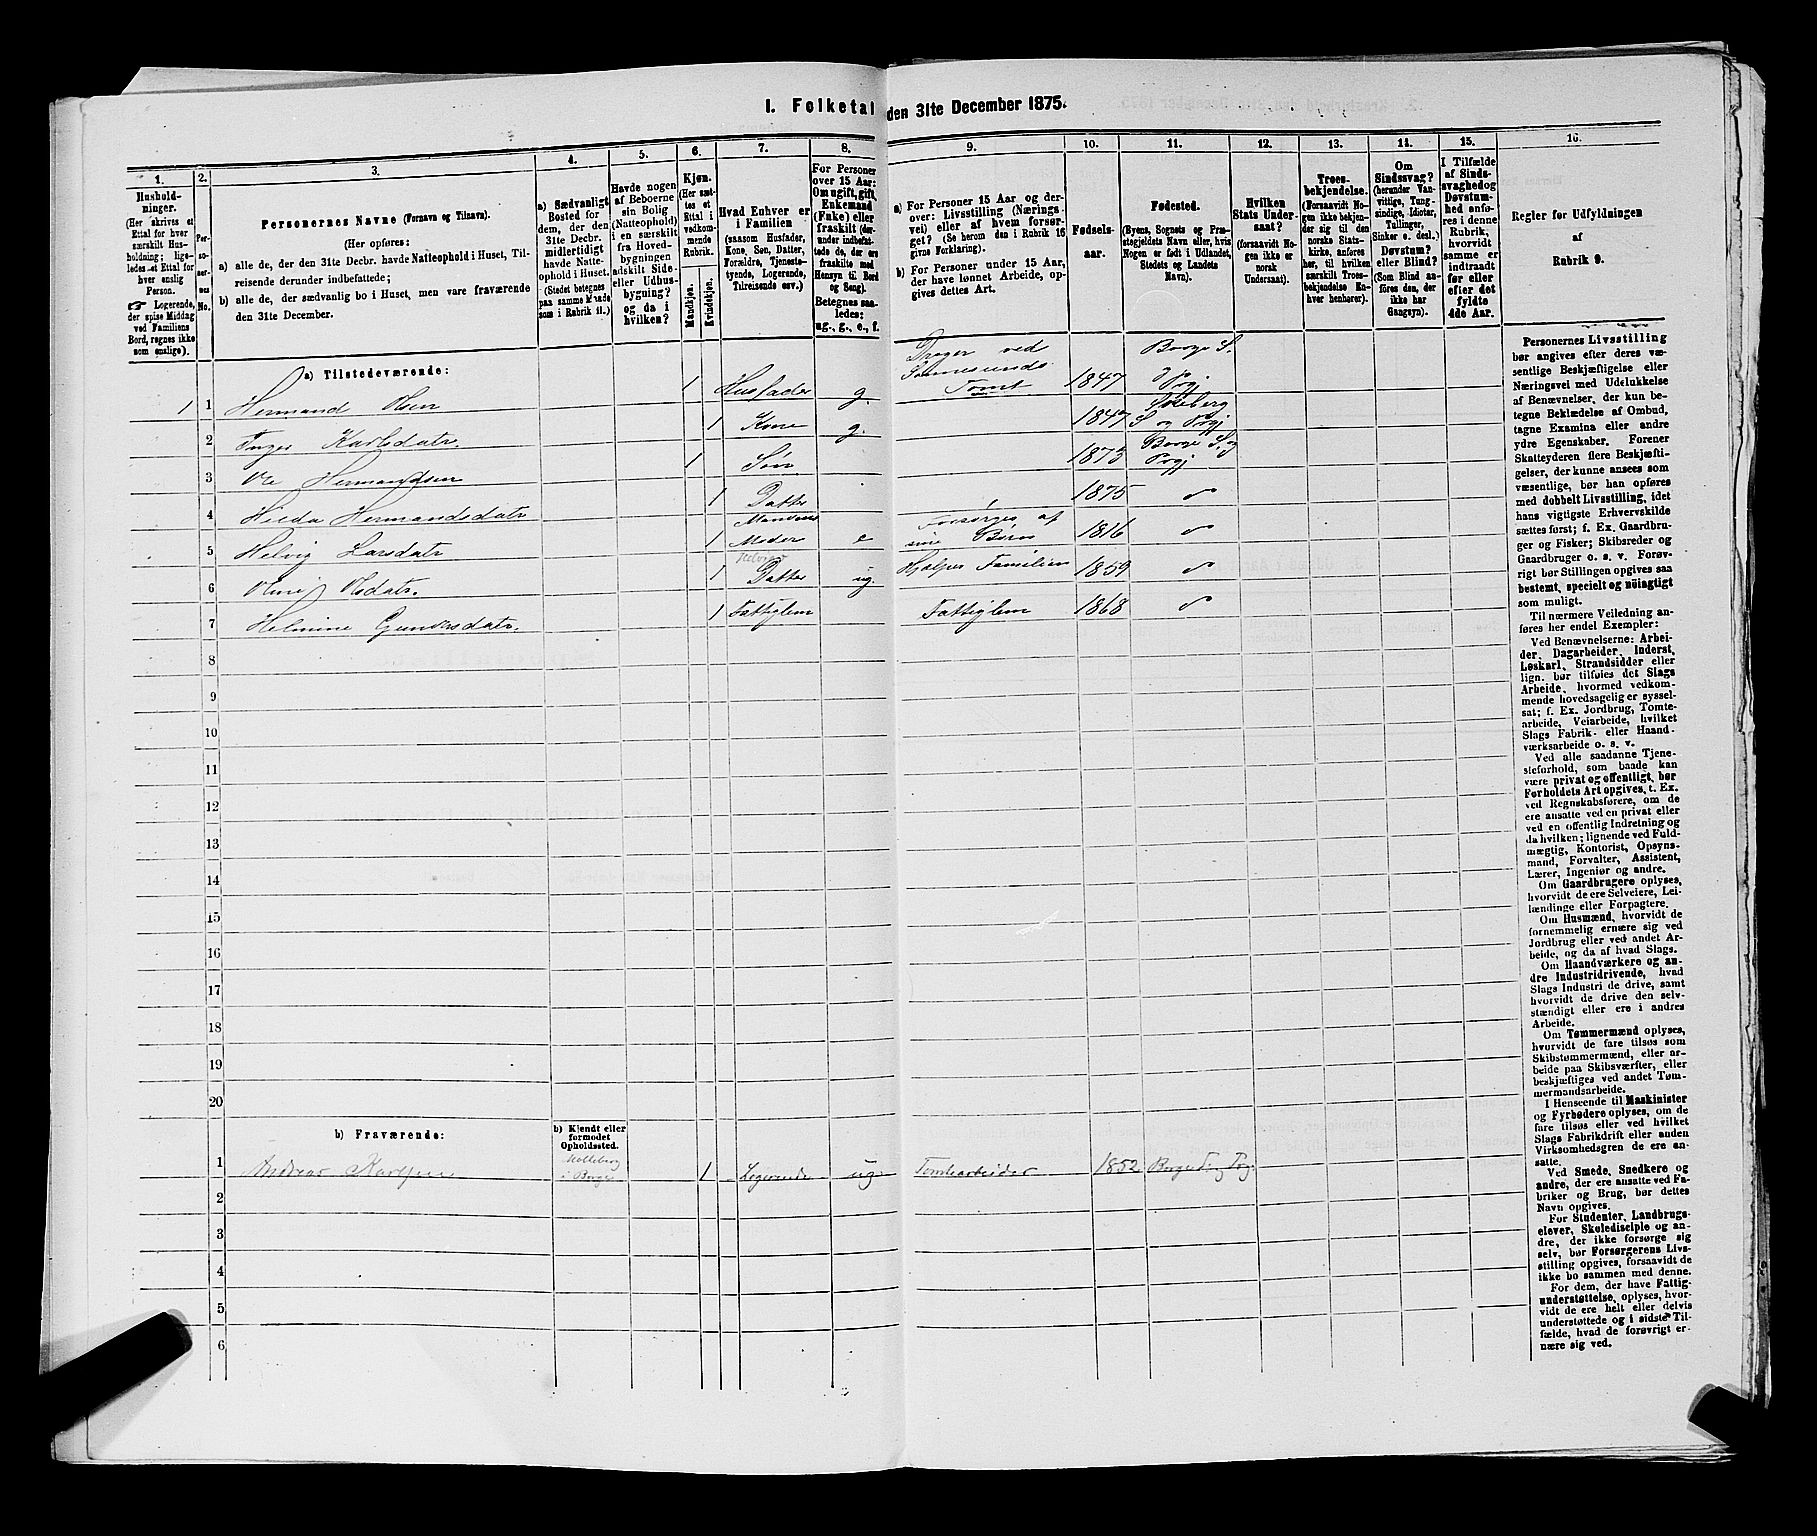 I. Folketal den 31te December 1875.
1.
Husholdninger.
(Her skrives et
Ettal for hver
særskilt Husholdning;
ligeledes et Ettal for
hver enslig
Person.
☞ Logerende,
der spise Middag
ved Familiens
Bord, regnes ikke
som enslige).
2.
Personernes
No.
3.
Personernes Navne (Fornavn og Tilnavn).
(Her opføres:
a) alle de, der den 31te Decbr. havde Natteophold i Huset, Tilreisende derunder indbefattede;
b) alle de, der sædvanlig bo i Huset, men vare fraværende
den 31te December.
4.
a) Sædvanligt
Bosted for
dem, der den
31te Decbr.
midlertidigt
havde Natteophold
i Huset.
(Stedet betegnes
paa samme Maade
som i Rubrik 11.)
5.
Havde nogen
af Beboerne
sin Bolig
(Natteophold)
i en særskilt
fra Hovedbygningen
adskilt Side-
eller Udhusbygning?
og da i
hvilken?
6.
Kjøn.
(Her sættes
et
Ettal i
vedkommende
Rubrik.
Mandkjøn.
Kvindekjøn.
7.
Hvad Enhver er
i Familien
(saasom Husfader,
Kone, Søn, Datter,
Forældre, Tjenestetyende,
Logerende,
Tilreisende osv.)
8.
For Personer
over 15 Aar:
Om ugift, gift,
Enkemand
(Enke) eller
fraskilt
Betegnes saaledes:
ug., g., e., f.
9.
a) For Personer 15 Aar og derover: Livsstilling (Næringsvei) eller af hvem forsørget? (Se herom den i Rubrik 16 givne Forklaring).
b) For Personer under 15 Aar, der have lønnet Arbeide, opgives dettes Art.
10.
Fødselsaar.
11.
Fødested.
(Byens, Sognets og Præstegjeldets Navn eller, hvis
Nogen er født i Udlandet,
Stedets og Landets
Navn).
12.
Hvilken
Stats Undersaat?
(forsaavidt Nogen
ikke er
norsk
Undersaat).
13.
Troesbekjendelse.
(Forsaavidt Nogen
ikke bekjender
sig til den
norske Statskirke,
anføres
her, til hvilken
særskilt Troesbekjendelse
Enhver
henhører).
14.
Om
Sindssvag?
(herunder Vanvittige,
Tungsindige,
Idioter,
Tullinger,
Sinker o. desl.)
Døvstum?
eller Blind?
(Som Blind anføres
den, der
ikke har
Gangsyn).
15.
I Tilfælde
af Sindssvaghed
og
Døvstumhed
anføres
i denne
Rubrik,
hvorvidt
samme er
indtraadt
før eller
efter det
fyldte
4de Aar.
16.
Regler for Udfyldningen
af
Rubrik 9.
a) Tilstedeværende:
1 1 Hermand Olsen 1 Husfader g. Drager ved Sannesunds Tomt 1847 Borge S. og Prgj
2 Inger Karlsdatr 1 Kone g. 1847 Skeberg S og Prgj
3 Ole Hermandsen 1 Søn 1873 Borge S. og Prgj
4 Hilda Hermandsdatr 1 Datter 1875
5 Helvig Larsdatr 1 Mandens Moder e Forsørges af sine Børn 1816
6 Olsdatr. 1 Helvigs Datter ug. Hjælper Familien 1859
7 Helmine Gundersdatr. 1 Fattiglem Fattiglem 1868
8
9
10
11
12
13
14
15
16
17
18
19
20
b) Fraværende:
b) Kjendt eller
formodet
Opholdssted.
1 Andreas Karlsen i Borge 1 Logerende ug Tomtearbeider 1852 Borge S og Prgj
2
3
4
5
6
Personernes Livsstilling
bør angives efter deres væsentlige
Beskjæftigelse eller
Næringsvei med Udelukkelse
af Benævnelser, der kun betegne
Beklædelse af Ombud,
tagne Examina eller andre
ydre Egenskaber. Forener
Skatteyderen flere Beskjæftigelser,
der kunne ansees som
væsentlige, bør han opføres
med dobbelt Livsstilling, idet
hans vigtigste Erhvervskilde
sættes først; f. Ex. Gaardbruger
og Fisker; Skibsreder og
Gaardbruger o. s. v. Forøvrigt
bør Stillingen opgives saa
bestemt, specielt og nøiagtigt
som muligt.
Til nærmere Veiledning anføres
her endel Exempler:
Ved Benævnelserne: Arbeider,
Dagarbeider, Inderst,
Løskarl, Strandsidder eller
lign. bør tilføies det Slags
Arbeide, hvormed vedkommende
hovedsagelig er sysselsat;
f. Ex. Jordbrug, Tomtearbeide,
Veiarbeide, hvilket
Slags Fabrik- eller Haandværksarbeide
o. s. v.
Ved alle saadanne Tjenesteforhold,
som baade kan
være privat og offentligt, bør
Forholdets Art opgives, f. Ex.
ved Regnskabsførere, om de
ere ansatte ved en privat eller
ved en offentlig Indretning og
da hvilken; lignende ved Fuldmægtig,
Kontorist, Opsynsmand,
Forvalter, Assistent,
Lærer, Ingeniør og andre.
Om Gaardbrugere oplyses,
hvorvidt de ere Selveiere, Leilændinge
eller Forpagtere.
Om Husmænd, hvorvidt de
fornemmelig ernære sig ved
Jordbrug eller ved andet Arbeide,
og da af hvad Slags.
Om Haandværkere og andre
Industridrivende, hvad
Slags Industri de drive, samt
hvorvidt de drive den selvstændigt
eller ere i andres
Arbeide.
Om Tømmermænd oplyses,
hvorvidt de fare tilsøs som
Skibstømmermænd, eller arbeide
paa Skibsværfter, eller
beskjæftiges ved andet Tømmermandsarbeide.
I Henseende til Maskinister
og Fyrbødere oplyses, om de
fare tilsøs eller ved hvilket
Slags Fabrikdrift eller anden
Virksomhed de ere ansatte.
Ved Smede, Snedkere og
andre, der ere ansatte ved Fabriker
og Brug, bør dettes
Navn opgives.
For Studenter, Landbrugselever,
Skoledisciple og andre,
der ikke forsørge sig
selv, bør Forsørgerens Livsstilling
opgives, forsaavidt de
ikke bo sammen med denne.
For dem, der have Fattigunderstøttelse,
oplyses, hvorvidt
de ere helt eller delvis
understøttede og i sidste Tilfælde,
hvad de forøvrigt ernære
sig ved.